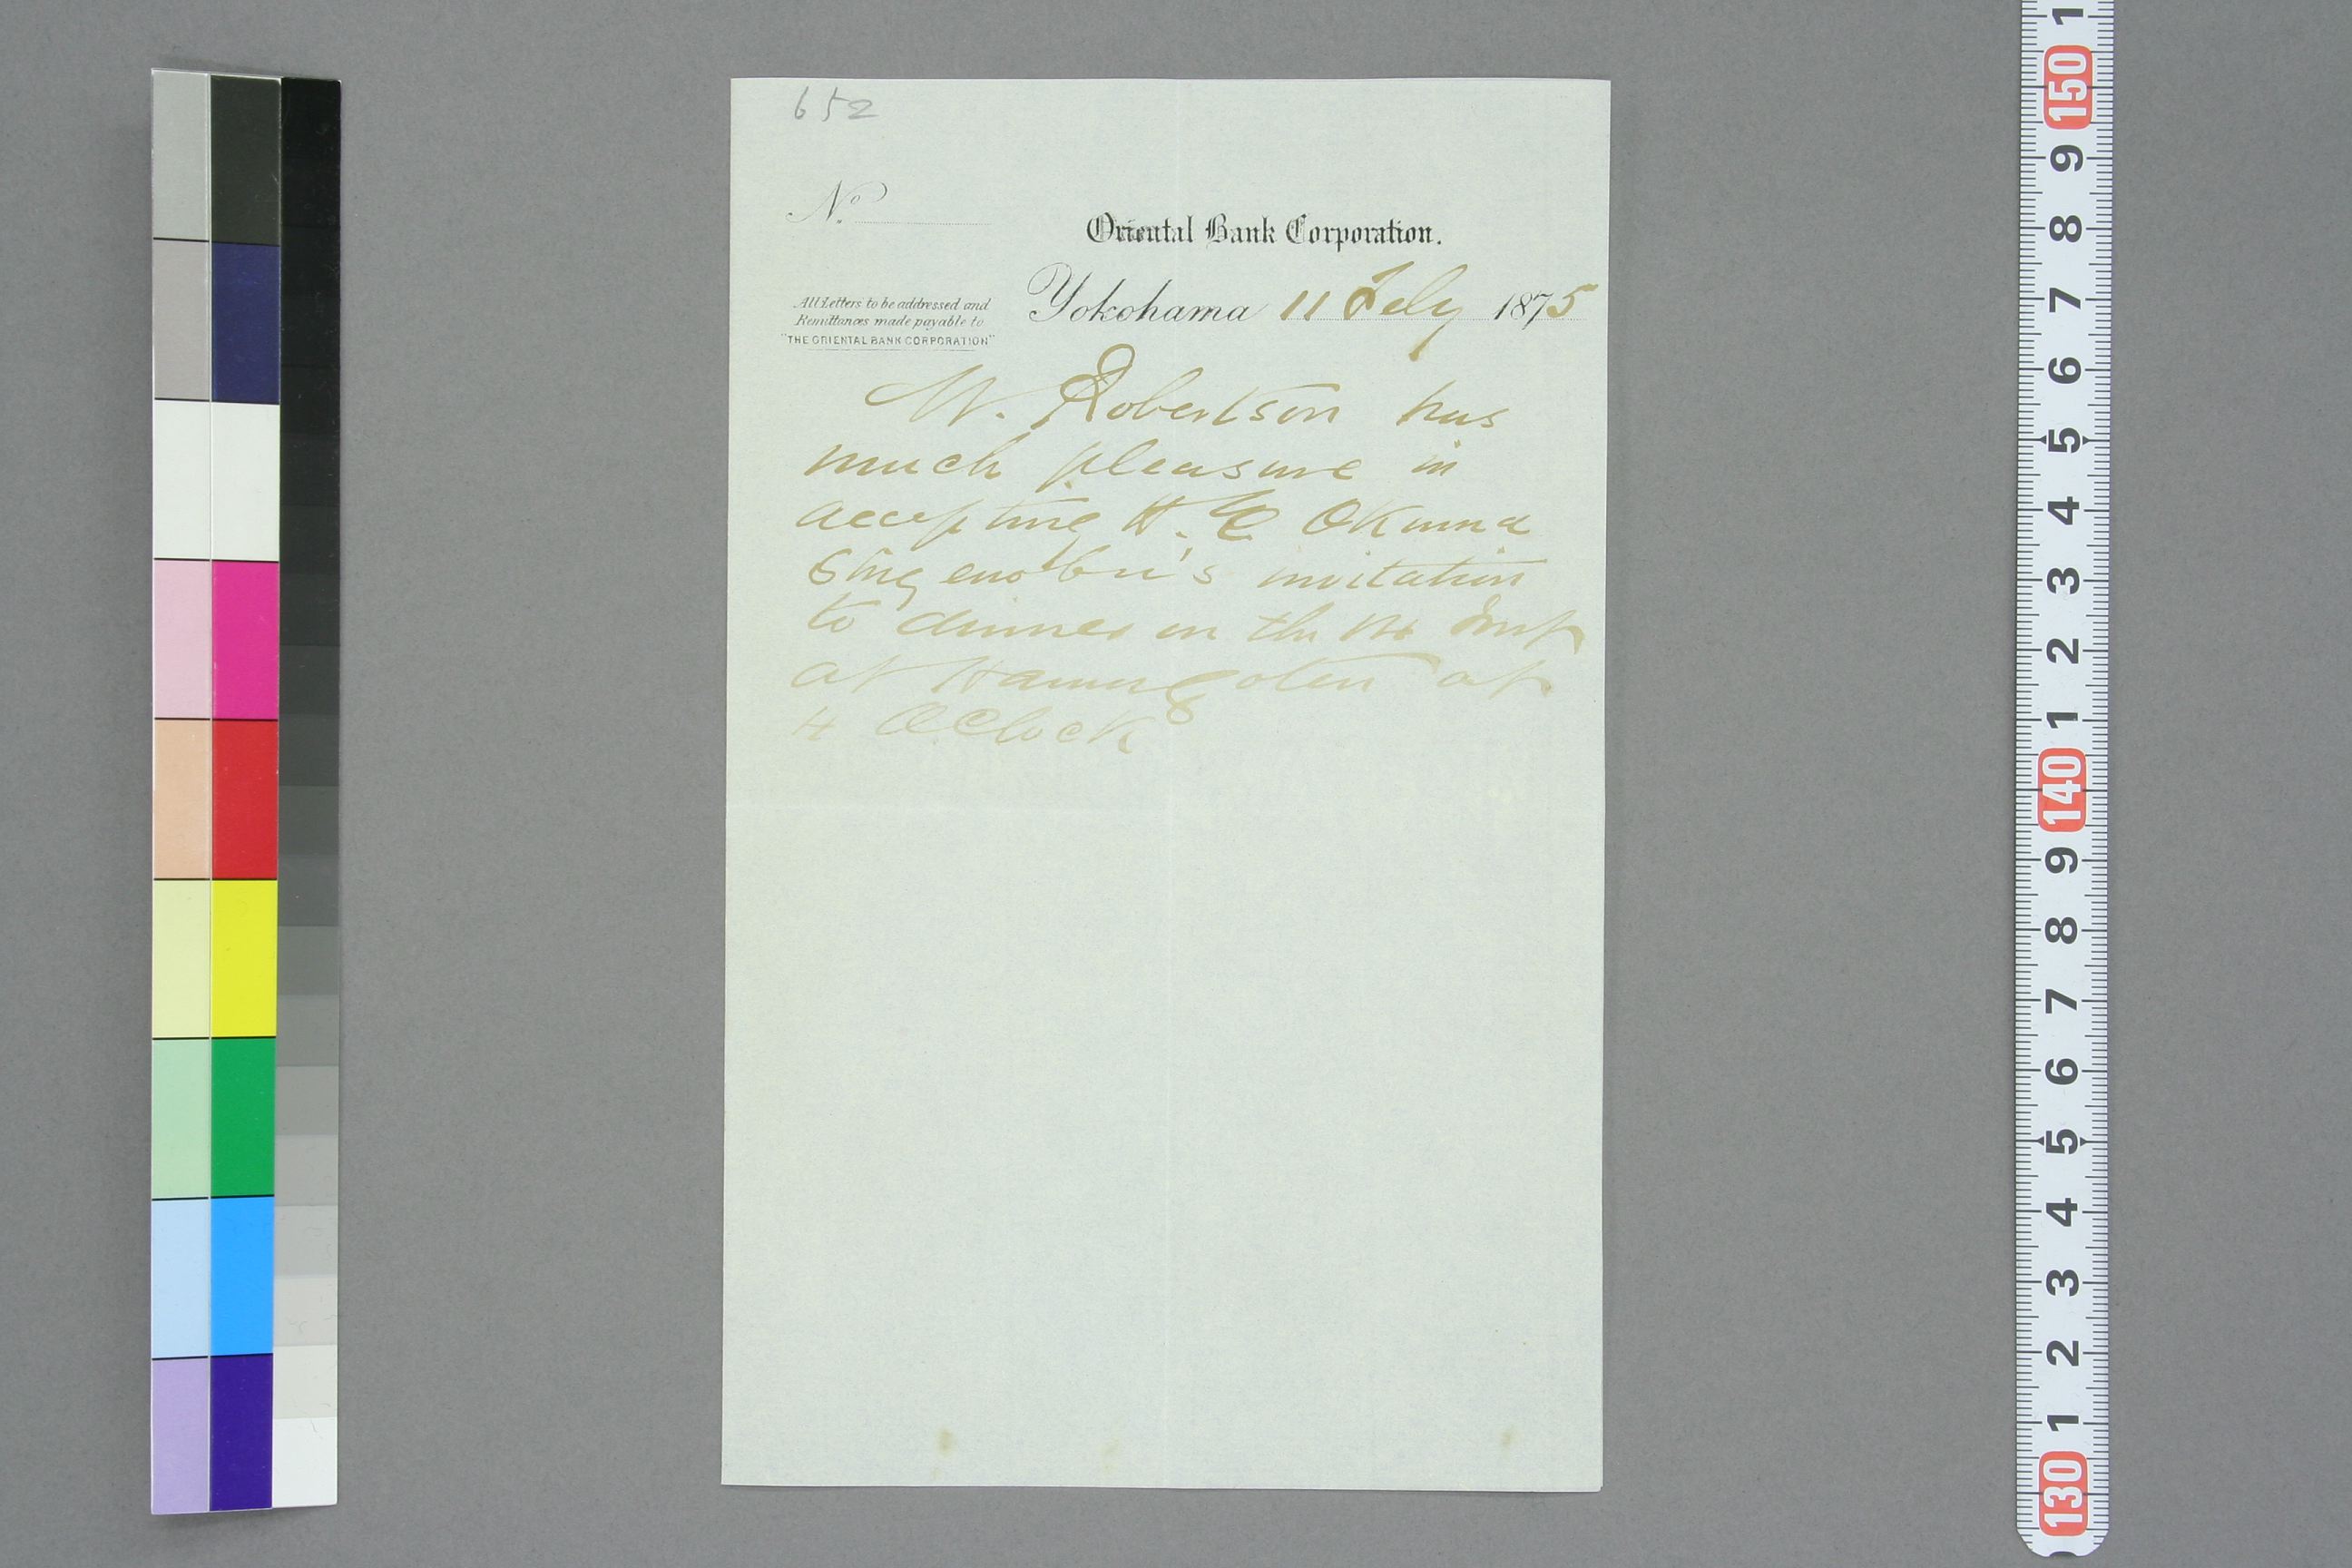 652
No
Oriental Bank Corporation.
All Letters to be addressed and
Remittances made payable to
"THE ORIENTAL BANK CORPORATION"
Yokohama 11 July 1875
Mr. Robertson has
much pleasure in
accepting H. E Okuma
Sigenobu's invitation
to dinner on the 14 Inst
at Hamagoten at
4 OClock
1
150
9
8
7
6
5
4
3
2
1
140
9
8
7
6
5
4
3
2
1
130